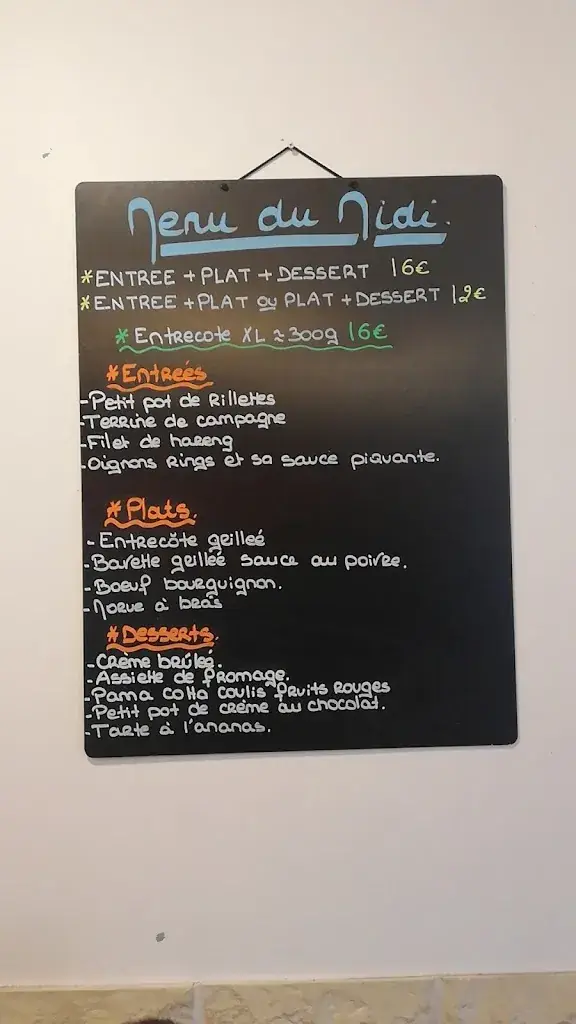 Menu du Midi.
*ENTREE + PLAT + DESSERT 16€
*ENTREE + PLAT ou PLAT + DESSERT 12€
*Entrecote XL ≈ 300g 16€
*Entrées
-Petit pot de Rillettes
-Terrine de campagne
-Filet de hareng
-Oignons Rings et sa sauce piquante.
*Plats.
-Entrecôte grilleé
-Bavette grillée sauce au poivre.
-Boeuf bourguignon.
-Morue à bras
*Desserts.
-Crème brûleé.
-Assiette de fromage.
-Pama cotta coulis fruits rouges
-Petit pot de crème au chocolat.
-Tarte à l'ananas.